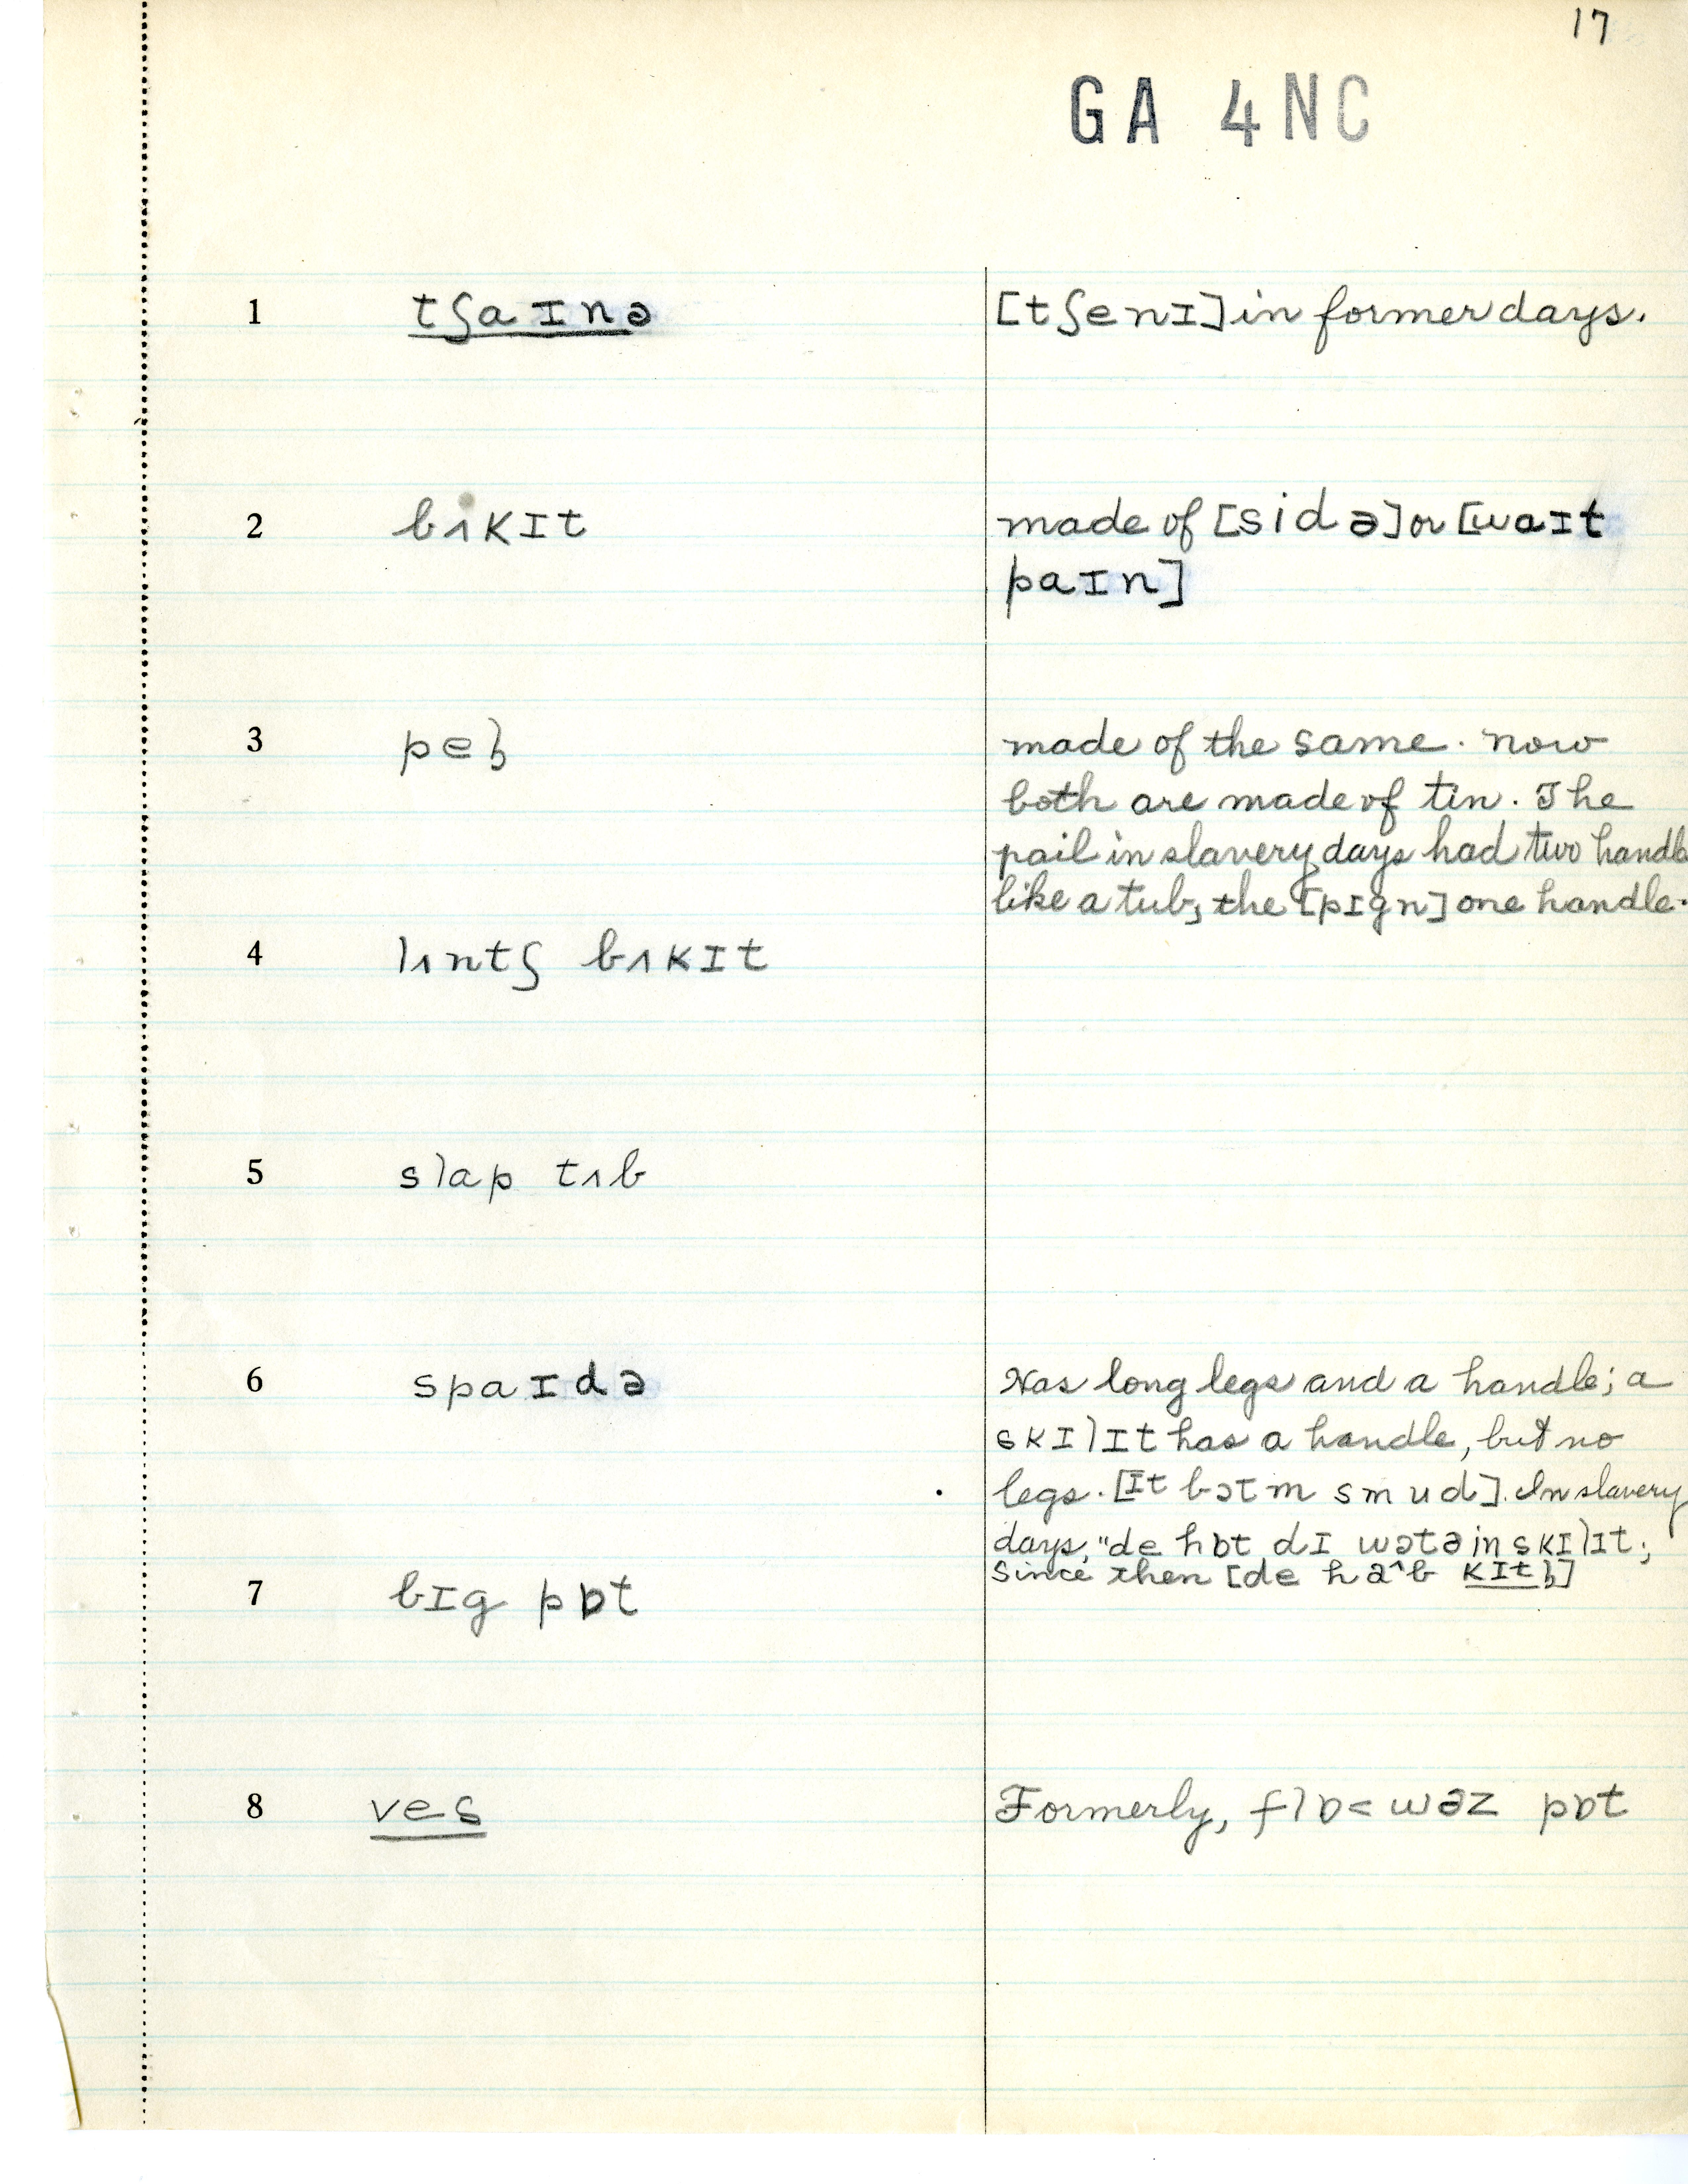 17
GA 4NC
1 tʃaɪnə [tʃenɪ] in former days.
2 bʌkɪt made of [sidə] or [waɪt
paɪn]
3 peɫ made of the same. now
both are made of tin. The
pail in slavery days had two handle
like a tub, the [pɪgn] one handle.
4 lʌntʃ bʌkɪt
5 slap tʌb
6 spaɪdə Has long legs and a handle; a
skɪlɪt has a handle, but no
legs. [ɪt bɔtm smud]. In slavery
days, "de hɒt dɪ wɔtə in skɪlɪt;
Since then [de ha^b kɪtɫ]
7 bɪg pɒt
8 ves Formerly, flɒ<wəz pɒt